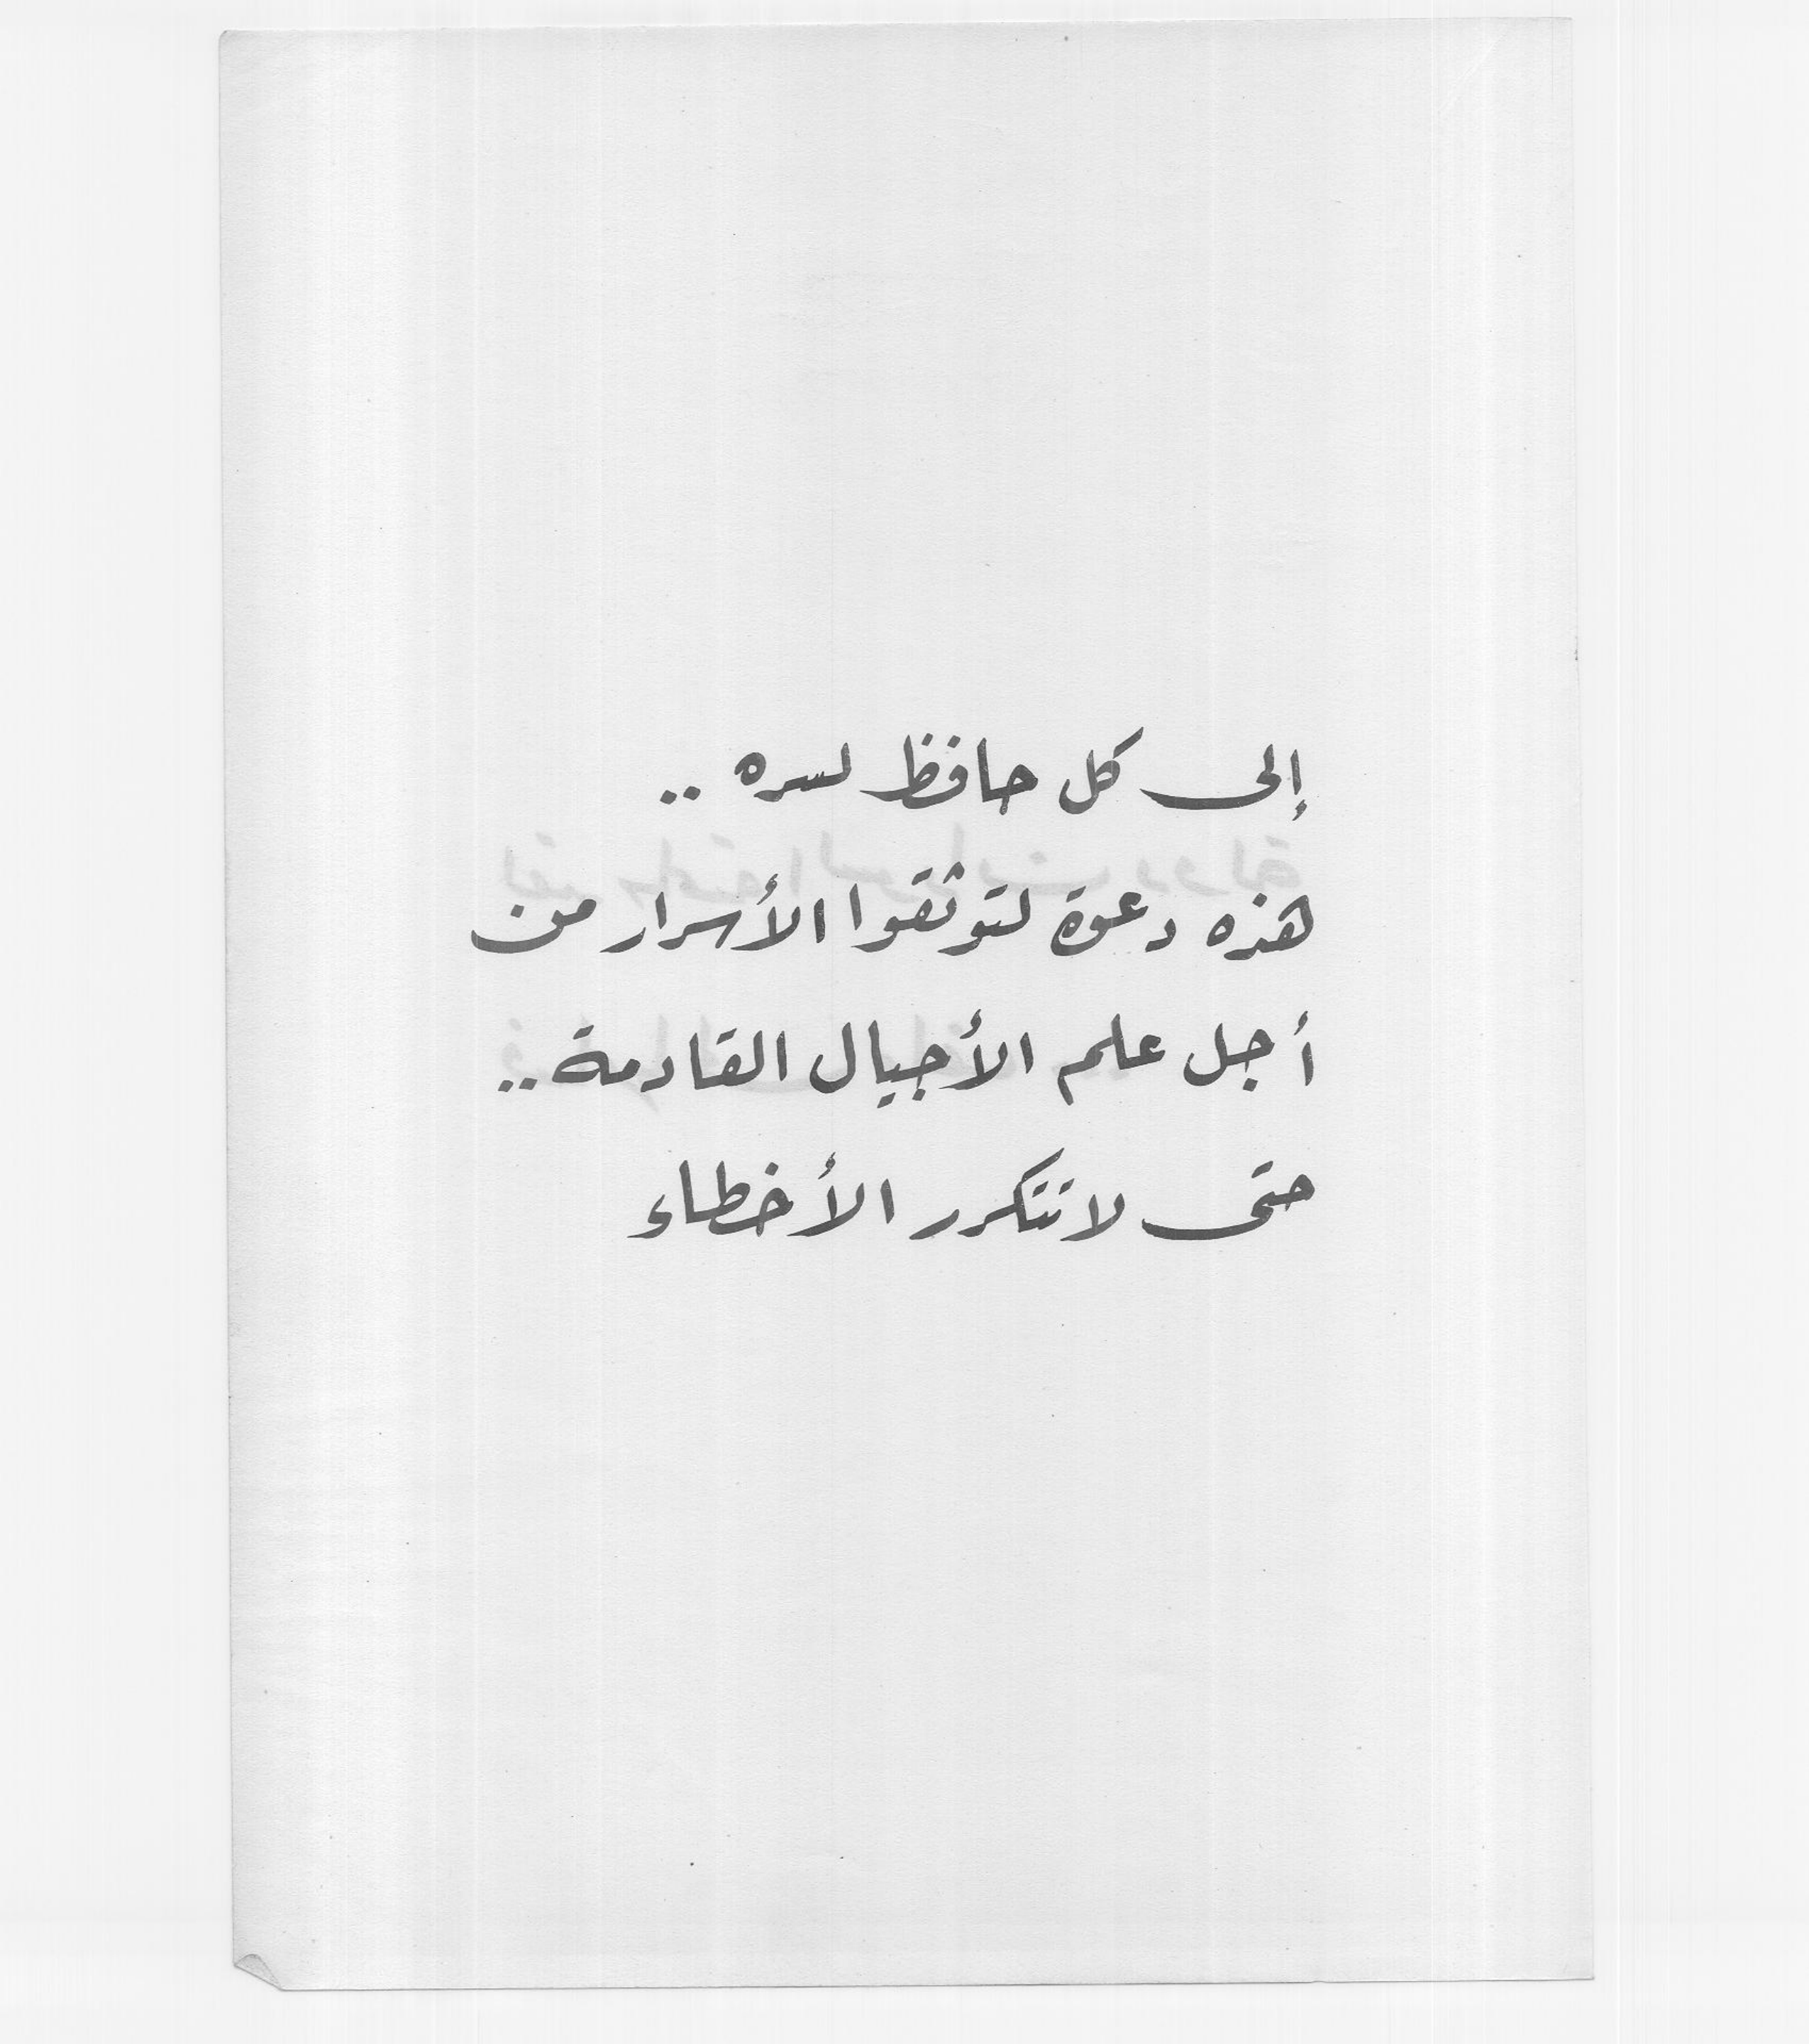 إلى كل حافظ لسره ..
هذه دعوة لتوثقوا الأسرار من
أجل علم الأجيال القادمة ..
حتى لا تتكرر الأخطاء